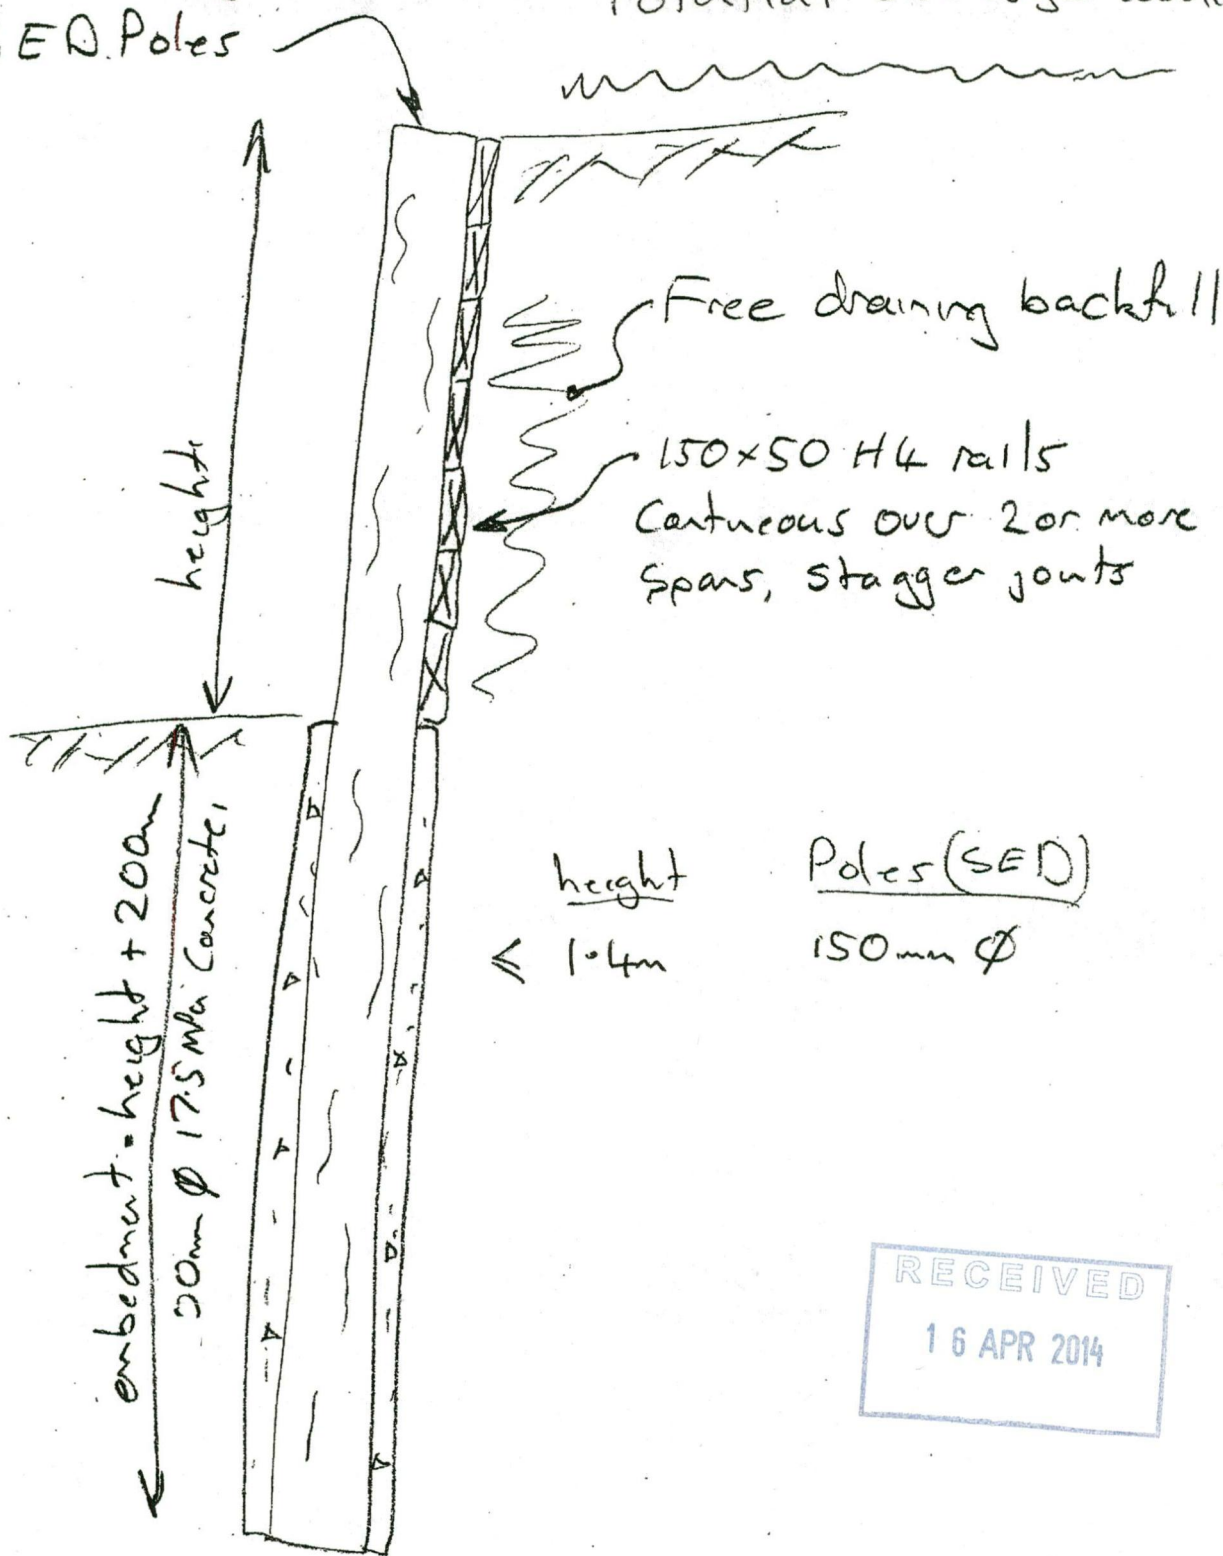 ED. Poles
Free draining backfill
150x50 H4 rails
Contineous over 2 or more
spans, stagger joints
height
embedment = height + 200mm
17.5 MPa Concrete
height Poles (SED)
≤ 1.4m 150mm Ø
RECEIVED
16 APR 2014